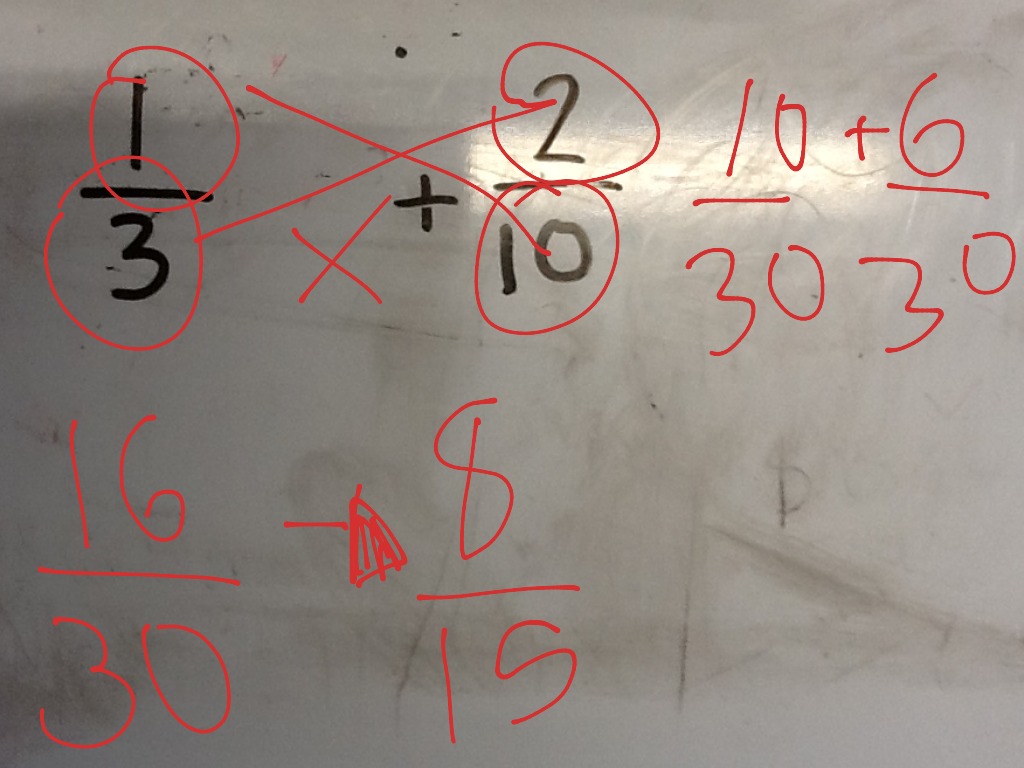 1/3 + 2/10 10/30 + 6/30
X
16/30 → 8/15